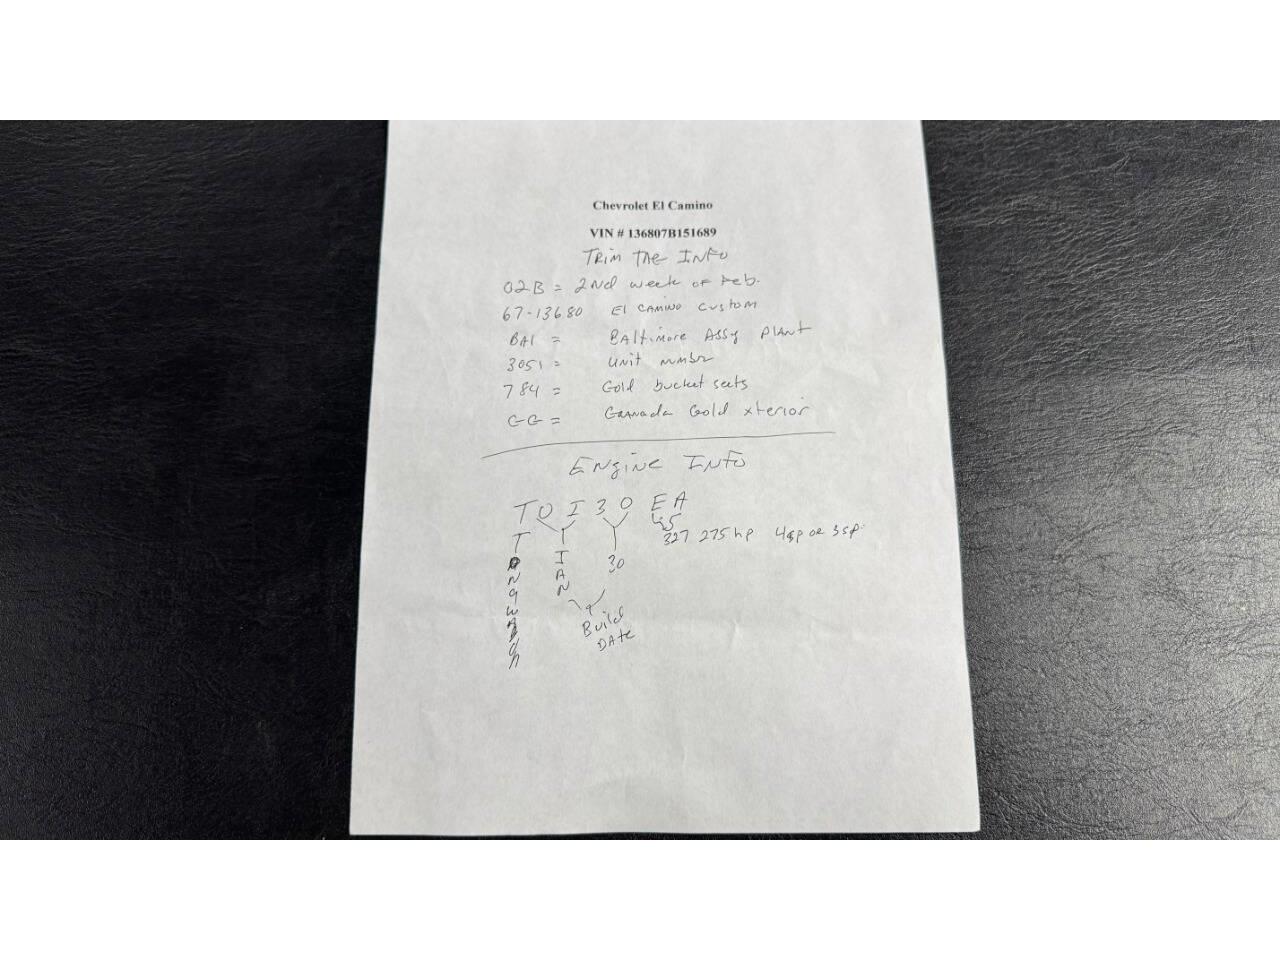 Chevrolet El Camino
VIN # 136807B151689
TRIM TAG INFO
02B = 2Nd week of Feb.
67-13680 El CAMINO CUSTOM
BAl = BAltimore ASSy PlANt
3051 = UNIT
784 = Gold bucket seets
GG = GRANada Gold xterior
ENgiNe INFO
T0130 EA
327 275 hp 4sp or 3sp.
JAN
30
Build
DAte